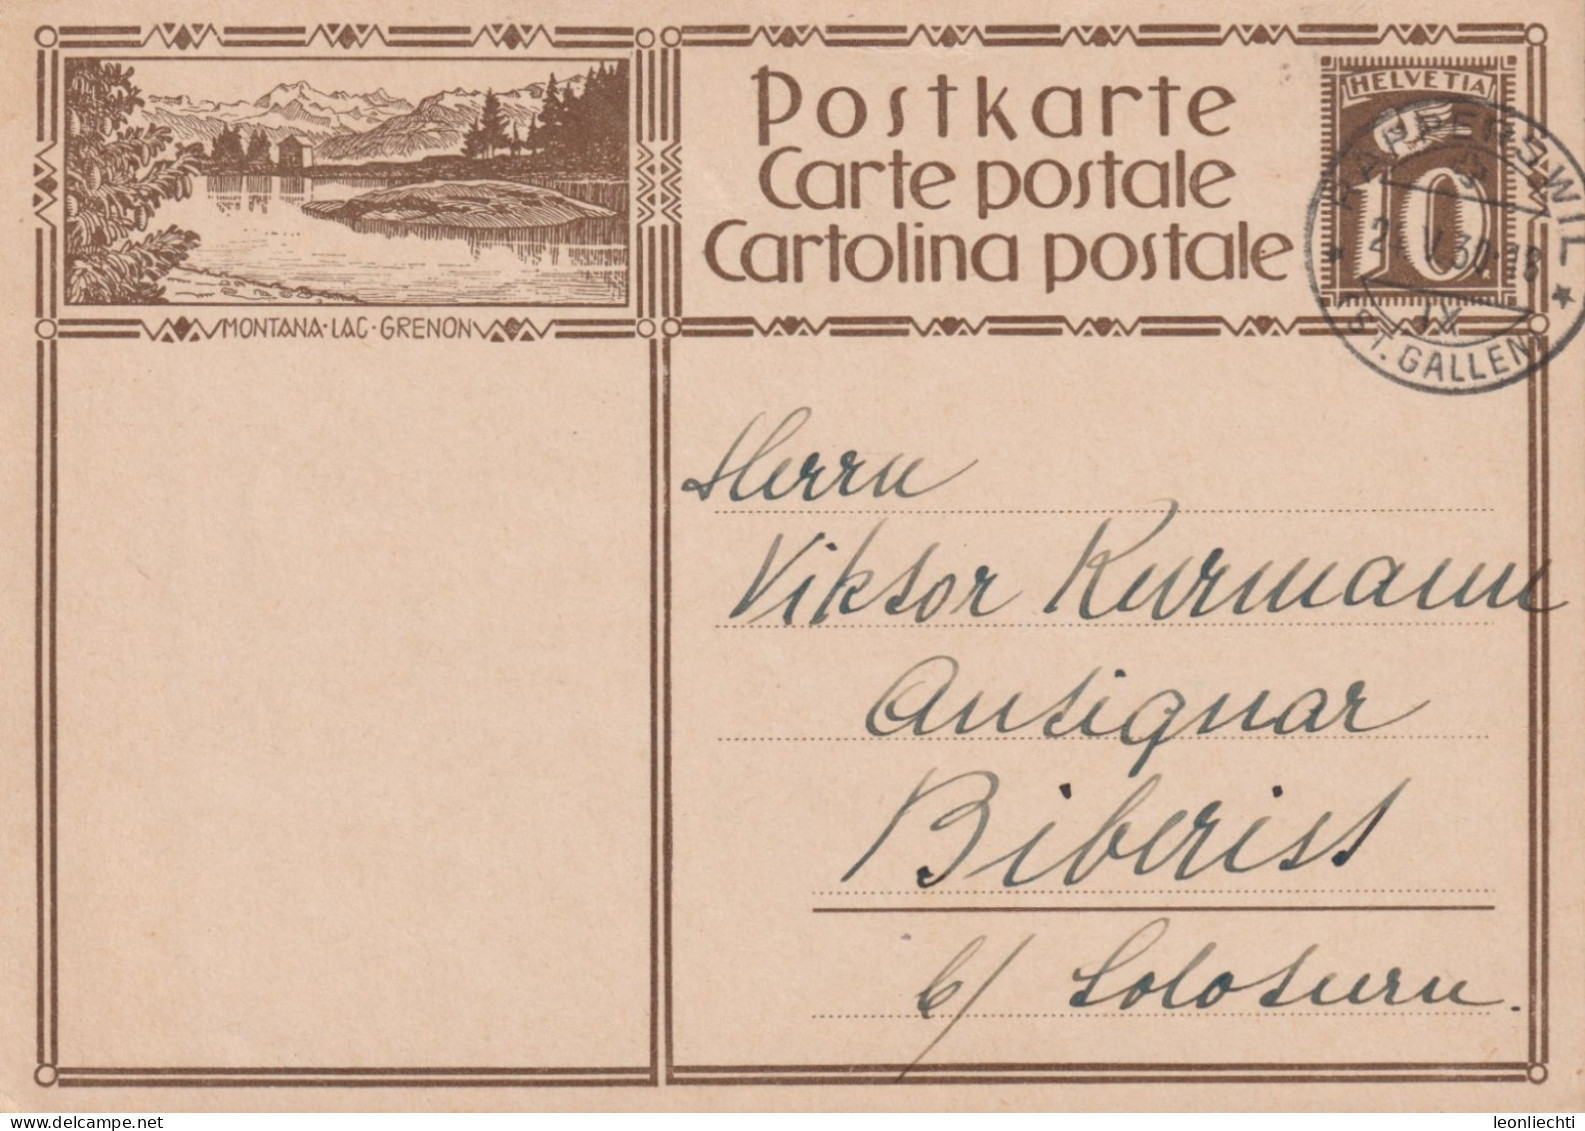 Postkarte
Carte postale
Cartolina postale
HELVETIA
10
RAPPERSWIL
V.30-18
IX
ST. GALLEN
MONTANA·LAC·GRENON
Herrn
Viktor Kurmann
Antiquar
Biberist
b/ Solothurn.
leonliechti